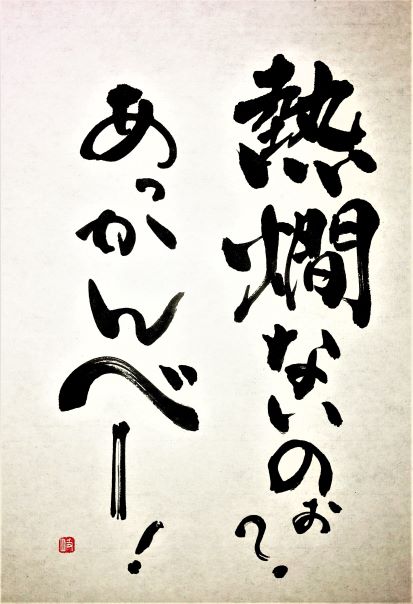 熱燗ないのぉ?
あっかんべー!